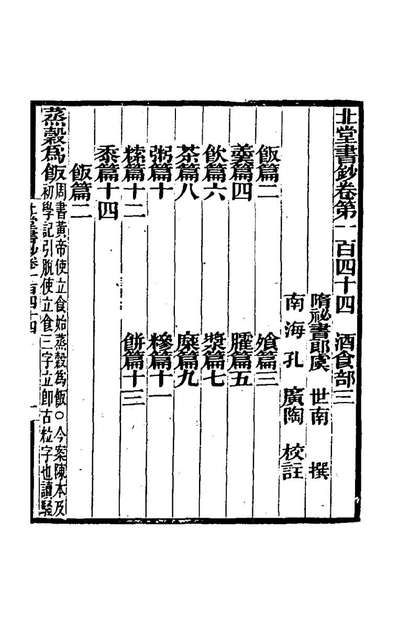 北堂書鈔卷第一百四十四 酒食部三
隋祕書郎虞 世南 撰
南海孔 廣陶 校註
飯篇二 飱篇三
羹篇四 臛篇五
飲篇六 漿篇七
茶篇八 糜篇九
粥篇十 糝篇十一
糗篇十二 餅篇十三
黍篇十四
飯篇二
蒸穀爲飯周書黃帝使立食始蒸穀爲飯○今案陳本及
初學記引脫使立食三字立即古粒字也讀騣
北堂書鈔卷一百四十四 一